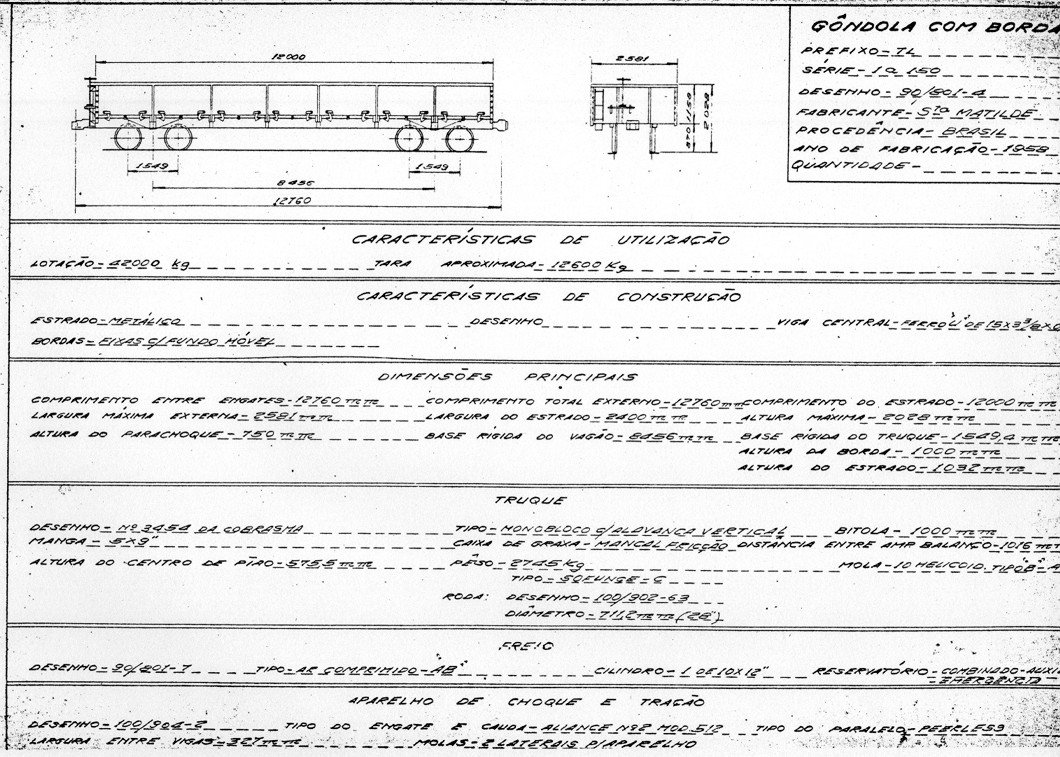 GÔNDOLA COM BORDA
PREFIXO - TL
SÉRIE - 1 a 150
DESENHO - 90/801-4
FABRICANTE - Sta MATILDE
PROCEDÊNCIA - BRASIL
ANO DE FABRICAÇÃO - 1958
QUANTIDADE -
12000
2581
1.549
1.549
8456
12760
870
1150
2028
CARACTERÍSTICAS DE UTILIZAÇÃO
LOTAÇÃO - 42000 kg TARA APROXIMADA - 12600 Kg
CARACTERÍSTICAS DE CONSTRUÇÃO
ESTRADO - METÁLICO DESENHO VIGA CENTRAL - FERRO "U" DE 15X3 3/8X
BORDAS - FIXAS C/ FUNDO MÓVEL
DIMENSÕES PRINCIPAIS
COMPRIMENTO ENTRE ENGATES - 12760 mm COMPRIMENTO TOTAL EXTERNO - 12760 mm COMPRIMENTO DO ESTRADO - 12000 mm
LARGURA MÁXIMA EXTERNA - 2581 mm LARGURA DO ESTRADO - 2400 mm ALTURA MÁXIMA - 2028 mm
ALTURA DO PARACHOQUE - 750 mm BASE RÍGIDA DO VAGÃO - 8456 mm BASE RÍGIDA DO TRUQUE - 1.549,4 mm
ALTURA DA BORDA - 1000 mm
ALTURA DO ESTRADO - 1032 mm
TRUQUE
DESENHO - Nº 3454 DA COBRASMA TIPO - MONOBLOCO C/ ALAVANCA VERTICAL BITOLA - 1000 mm
MANGA - 5X9" CAIXA DE GRAXA - MANCAL FRICÇÃO DISTÂNCIA ENTRE AMP BALANÇO - 1016 mm
ALTURA DO CENTRO DE PIÃO - 575,5 mm PÊSO - 2745 Kg MOLA - 10 HELICOID. TIPO "B" - A
TIPO - SOFUNGE - C
RODA: DESENHO - 100/902-63
DIÂMETRO - 711,2 mm (28")
FREIO
DESENHO - 90/801-7 TIPO - AR COMPRIMIDO - "AB" CILINDRO - 1 DE 10X12" RESERVATÓRIO - COMBINADO - AUXI
- EMERGÊNCIA
APARELHO DE CHOQUE E TRAÇÃO
DESENHO - 100/904-2 TIPO DO ENGATE E CAUDA - ALIANCE Nº 2 MOD. 512 TIPO DO PARALELO - PEERLESS
LARGURA ENTRE VIGAS - 327 mm MOLAS - 2 LATERAIS P/ APARELHO